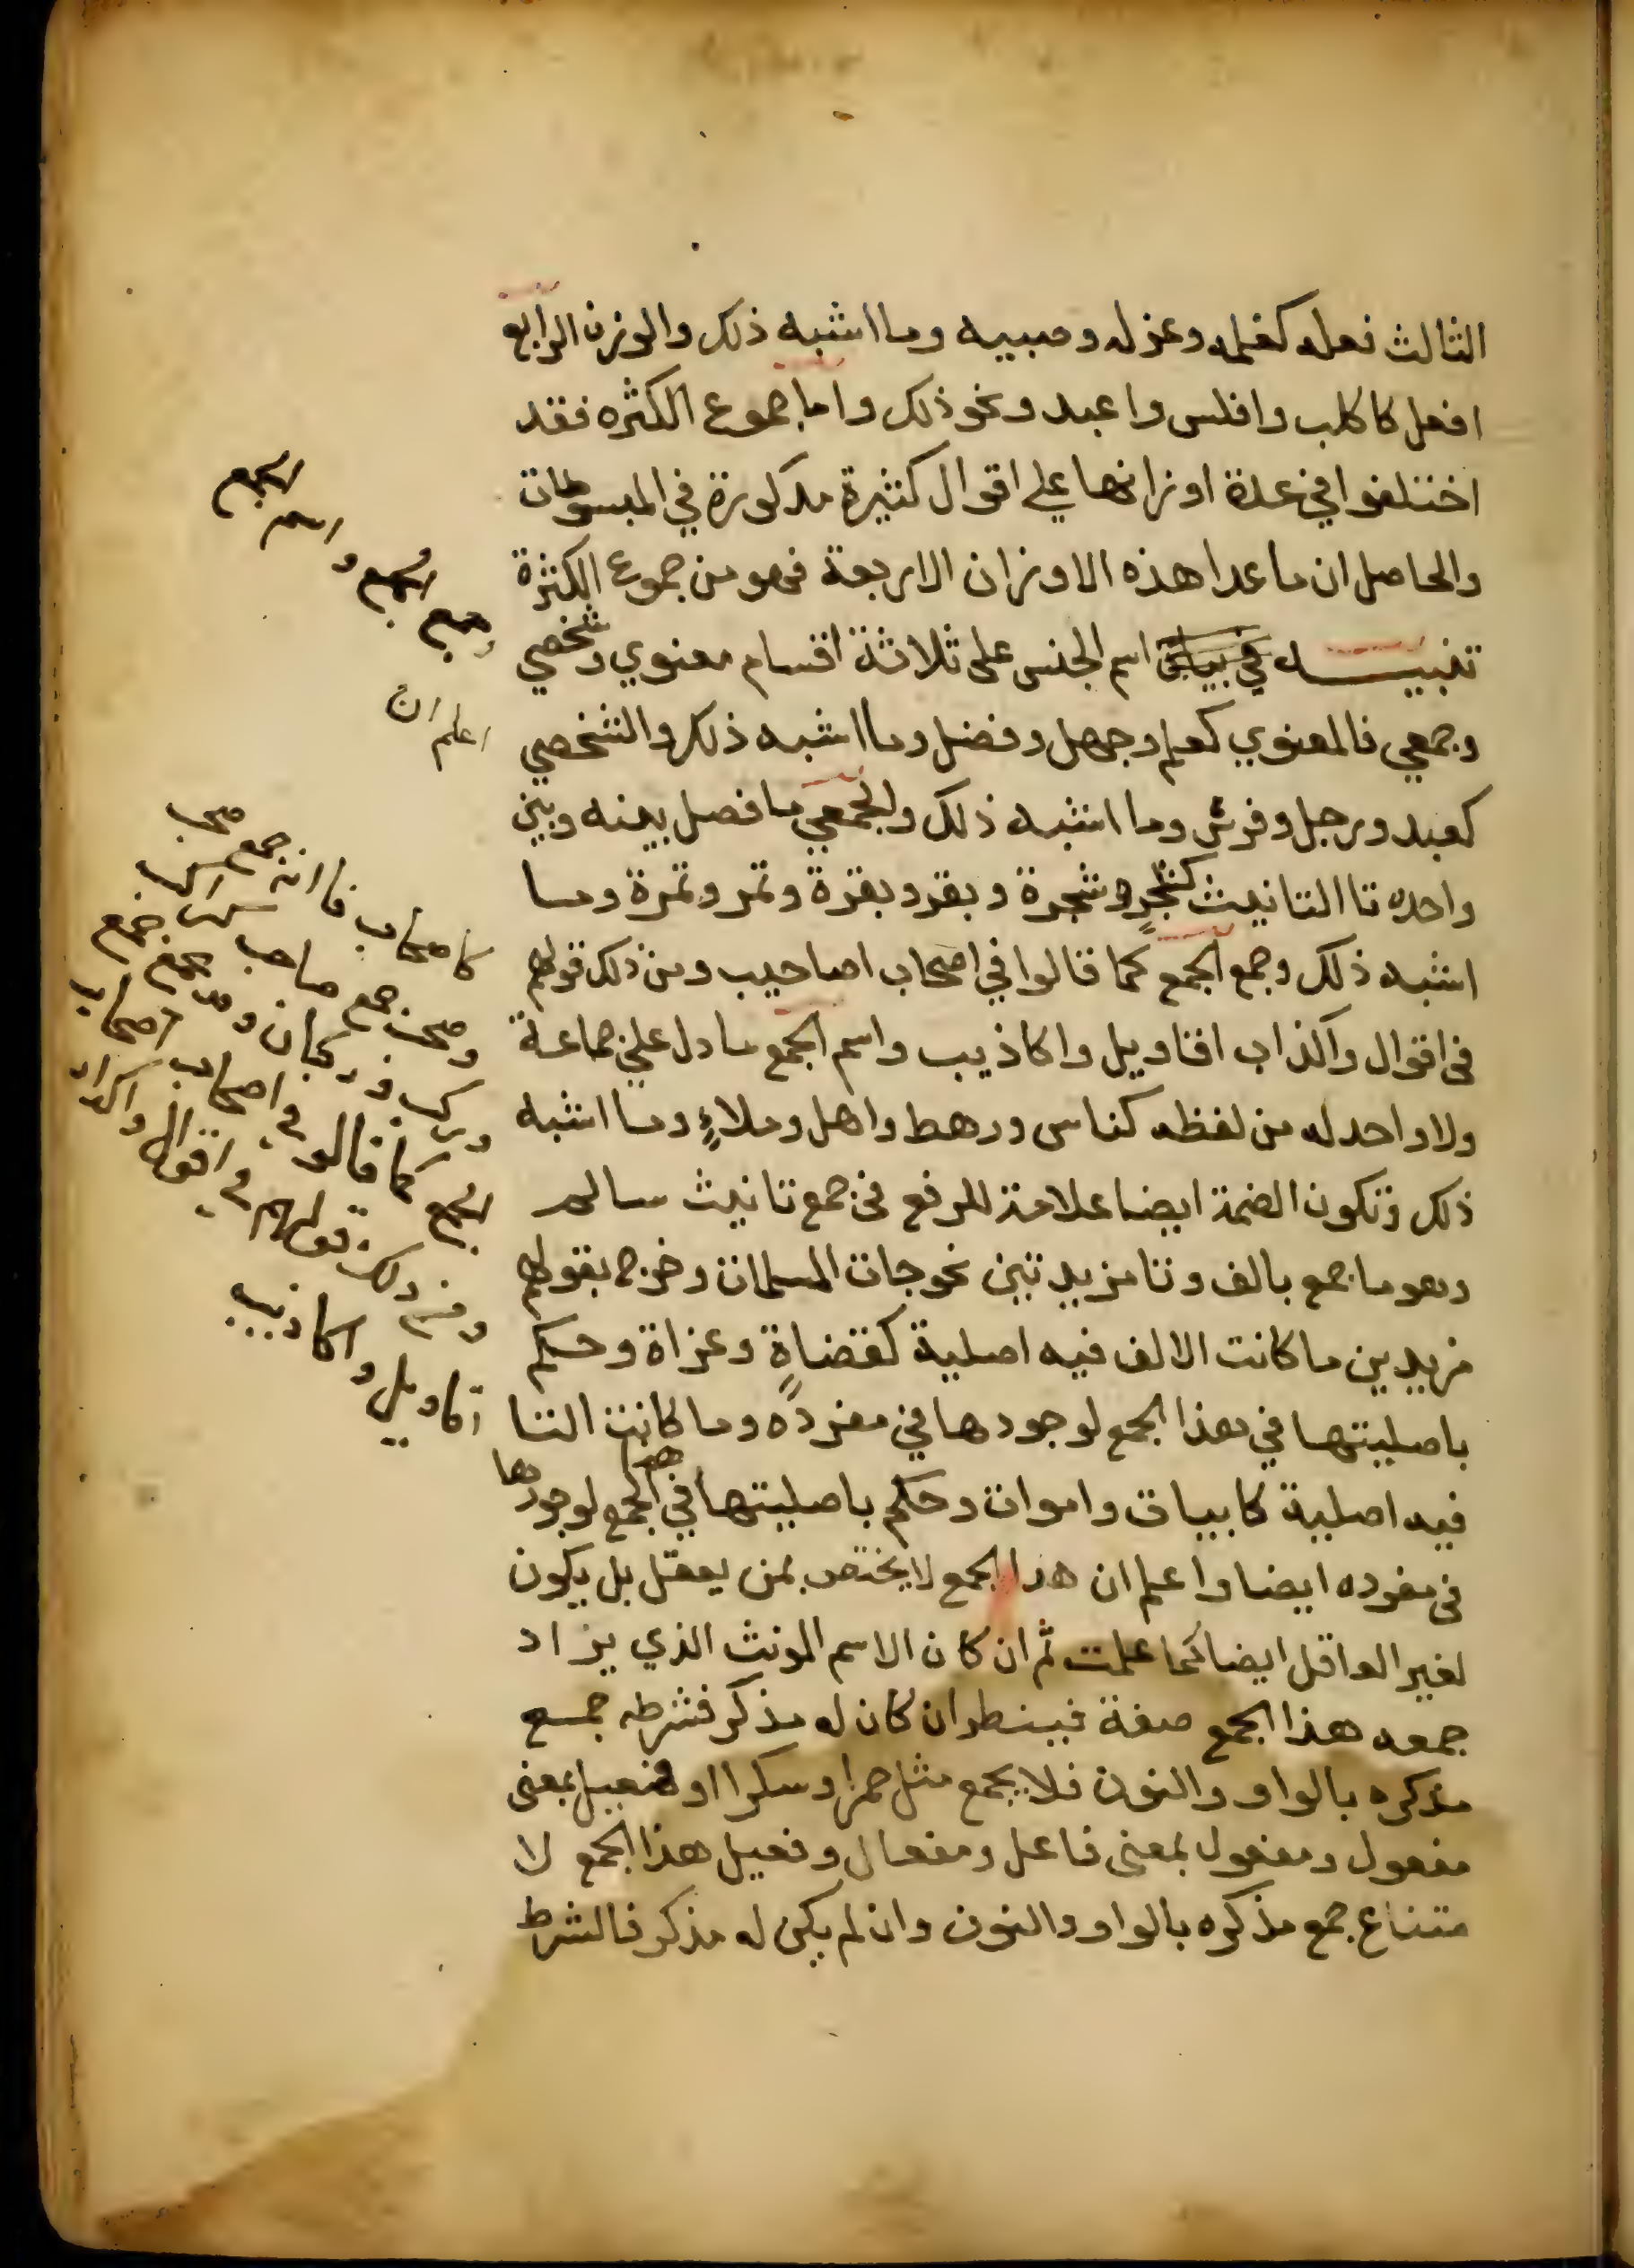 الثالث فعله كغلمه وغزله وصبيه وما اشبه ذلك والوزن الرابع
افعل كاكلب وافلس واعبد ونحو ذلك واما جموع الكثره فقد
اختلفوا في عدة اوزانها علي اقوال كثيرة مذكورة في المبسوطات
والحاصل ان ما عدا هذه الاوزان الاربعة فهو من جموع الكثرة
تنبيـــه في بيان اسم الجنس على ثلاثة اقسام معنوي وشخصي
وجمعي فالمعنوي كعلم وجهل وفضل وما اشبه ذلك والشخصي
كعبد ورجل وفرس وما اشبه ذلك والجمعي ما فصل بينه وبين
واحده تا التانيث كشجرٍ وشجرة وبقر وبقرة وتمر وتمرة وما
اشبه ذلك وجمع الجمع كما قالوا في اصحاب اصاحيب ومن ذلك قولهم
في اقوال واكذاب اقاويل واكاذيب واسم الجمع ما دل علي جماعة
ولا واحد له من لفظه كناس ورهط واهل وملاءٍ وما اشبه
ذلك وتكون الضمة ايضا علامة للرفع في جمع تانيث سالم
وهو ما جمع بالف وتا مزيدتين نحو جات المسلمات وخرج بقولهم
مزيدين ما كانت الالف فيه اصلية كقضاةٍ وغزاة وحكم
باصليتها في هذا الجمع لوجودها في مفرده وما كانت التا
فيه اصلية كابيات واموات وحكم باصليتها في هذا الجمع لوجودها
في مفرده ايضا واعلم ان هذا الجمع لا يختص بمن يعقل بل يكون
لغير العاقل ايضا كما علمت ثم ان كان الاسم المونث الذي يراد
جمعه هذا الجمع صفة فينظر ان كان له مذكر فشرطه جمع
مذكره بالواو والنون فلا يجمع مثل حمرا وسكرا او فعيل بمعنى
مفعول ومفعول بمعنى فاعل ومفعال وفعيل هذا الجمع لا
متناع جمع مذكره بالواو والنون وان لم يكن له مذكر فالشرط
وجمع الجمع واسم الجمع
اعلم ان
كاصحاب فانه جمع صحب
وصحب جمع صاحب
وركب وركبان وقد يجمع جمع
الجمع كما قالو في اصحاب اصحاب
ومن ذلك قولهم في اقوال واكذاب
اقاويل واكاذيب